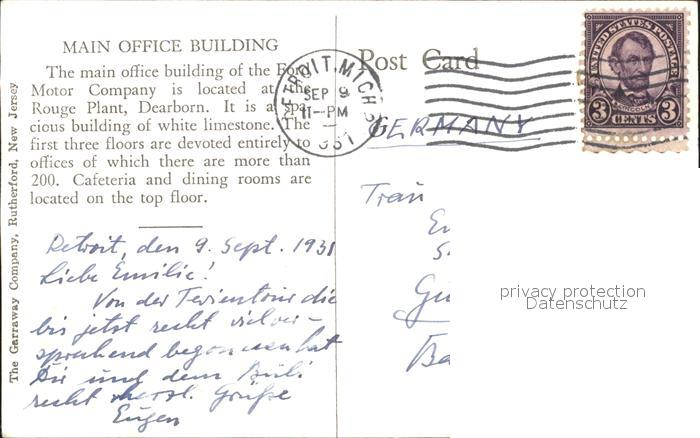 MAIN OFFICE BUILDING
The main office building of the Ford
Motor Company is located at the
Rouge Plant, Dearborn. It is a spa-
cious building of white limestone. The
first three floors are devoted entirely to
offices of which there are more than
200. Cafeteria and dining rooms are
located on the top floor.
The Garraway Company, Rutherford, New Jersey
Detroit, den 9. Sept. 1931
Liebe Emilie!
Von der Ferientour die
bis jetzt recht vielver-
sprechend begonnen hat
Dir und dem
recht herzl. Grüße
Eugen
Post Card
DETROIT, MICH.
SEP 9
11-PM
1931
UNITED STATES POSTAGE
LINCOLN
3 CENTS 3
GERMANY
Frau
privacy protection
Datenschutz